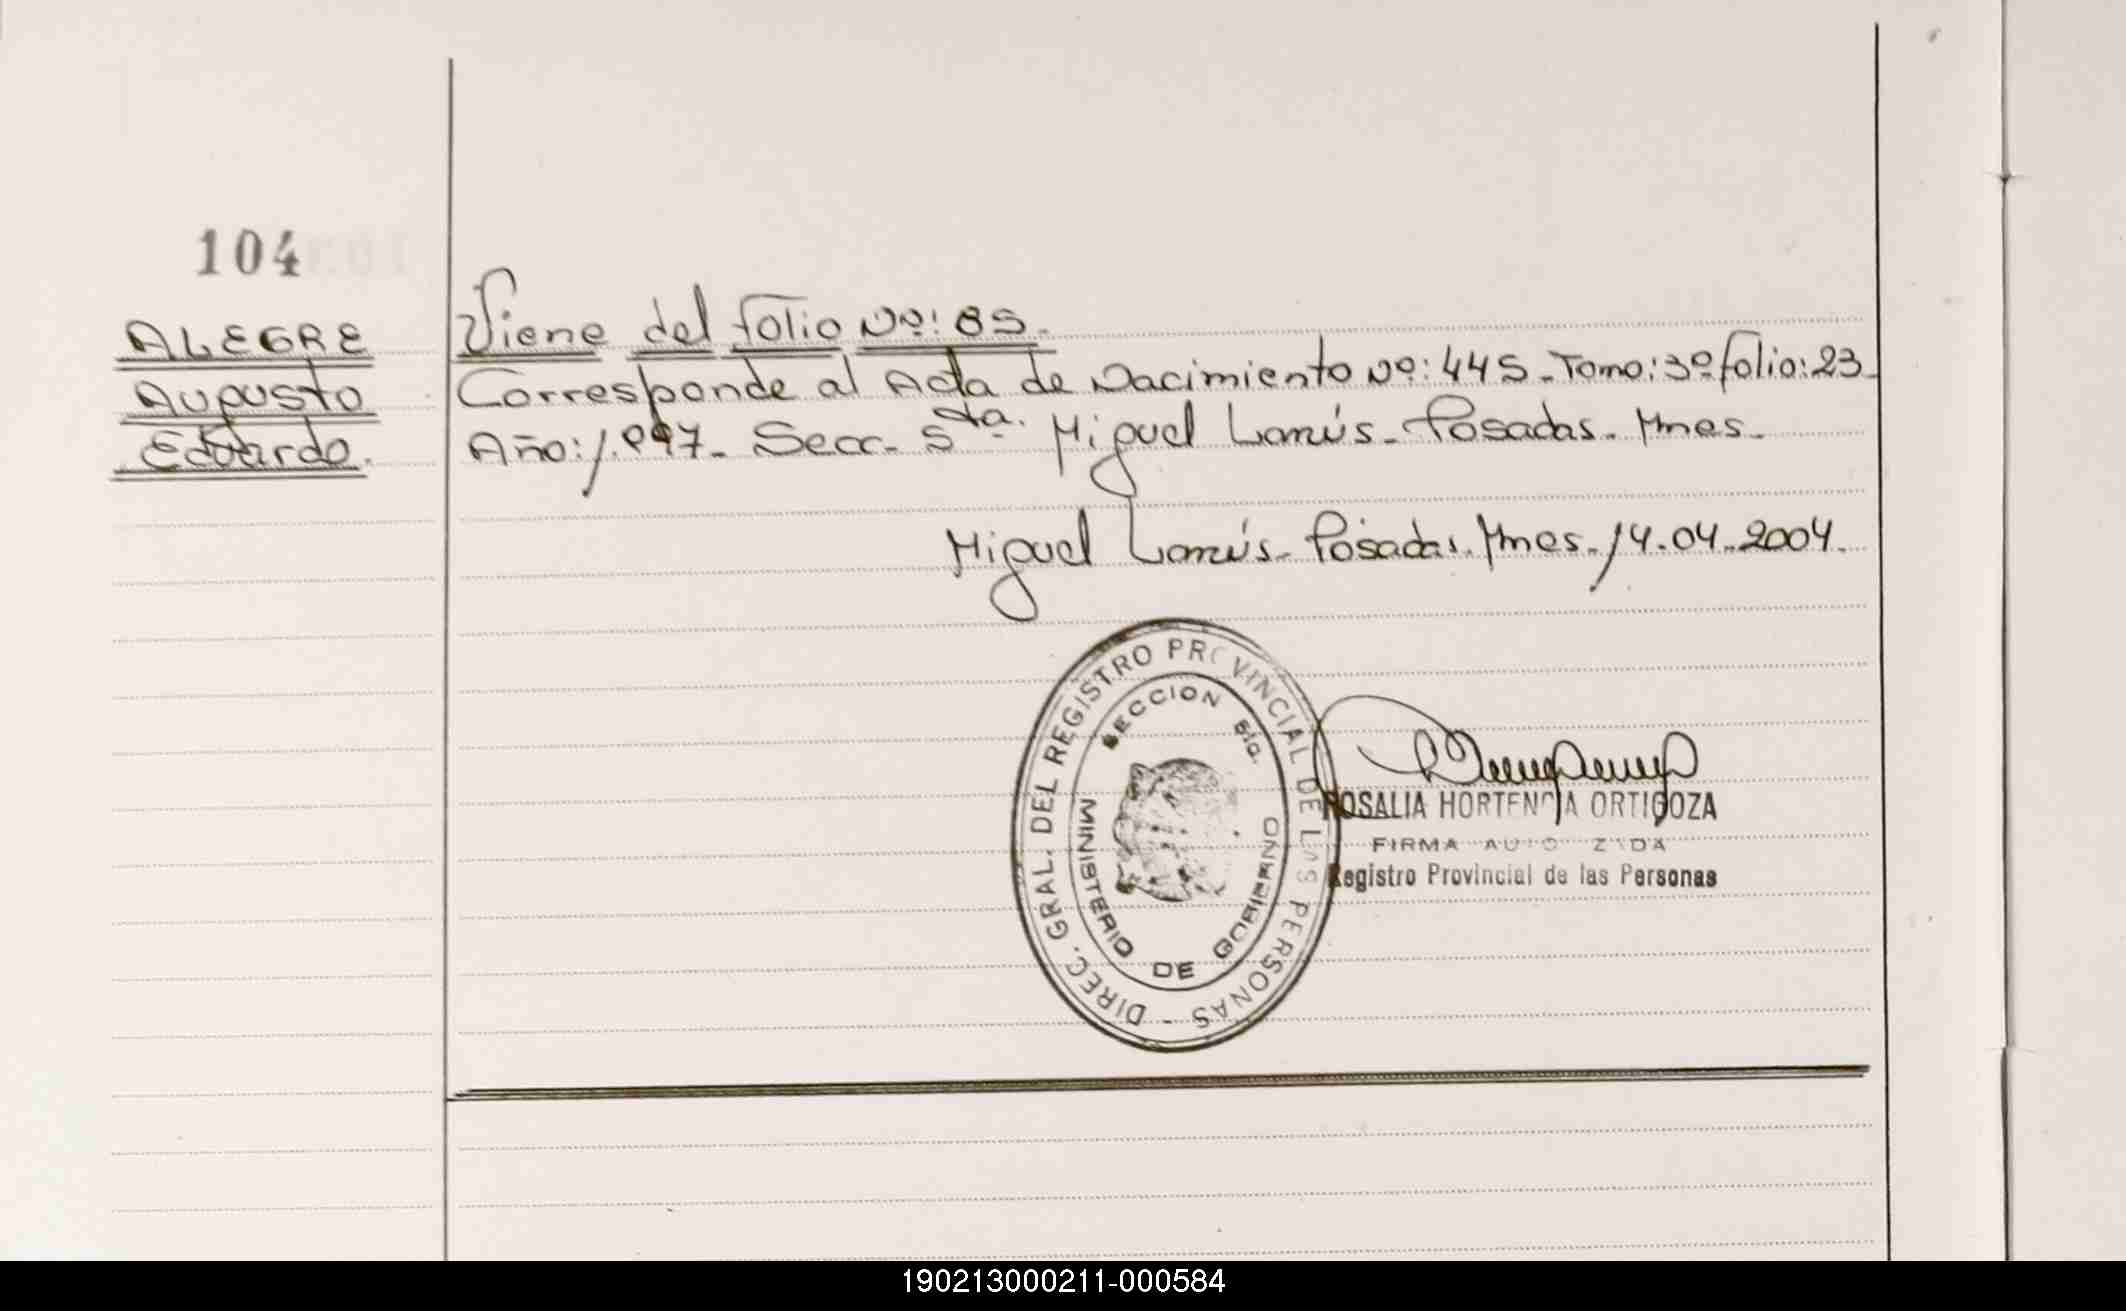 104
ALEGRE
Augusto
Eduardo.
Viene del folio Nº: 85.
Corresponde al Acta de Nacimiento Nº: 445. Tomo: 3º folio: 23.
Año: 1.997. Secc. 5ta. Miguel Lanús. Posadas. Mnes.
Miguel Lanús. Posadas. Mnes. 14.04.2004.
DIREC. GRAL. DEL REGISTRO PROVINCIAL DE LAS PERSONAS -
SECCION 5ta.
MINISTERIO DE GOBIERNO
ROSALIA HORTENCIA ORTIGOZA
FIRMA AUTORIZADA
Registro Provincial de las Personas
190213000211-000584